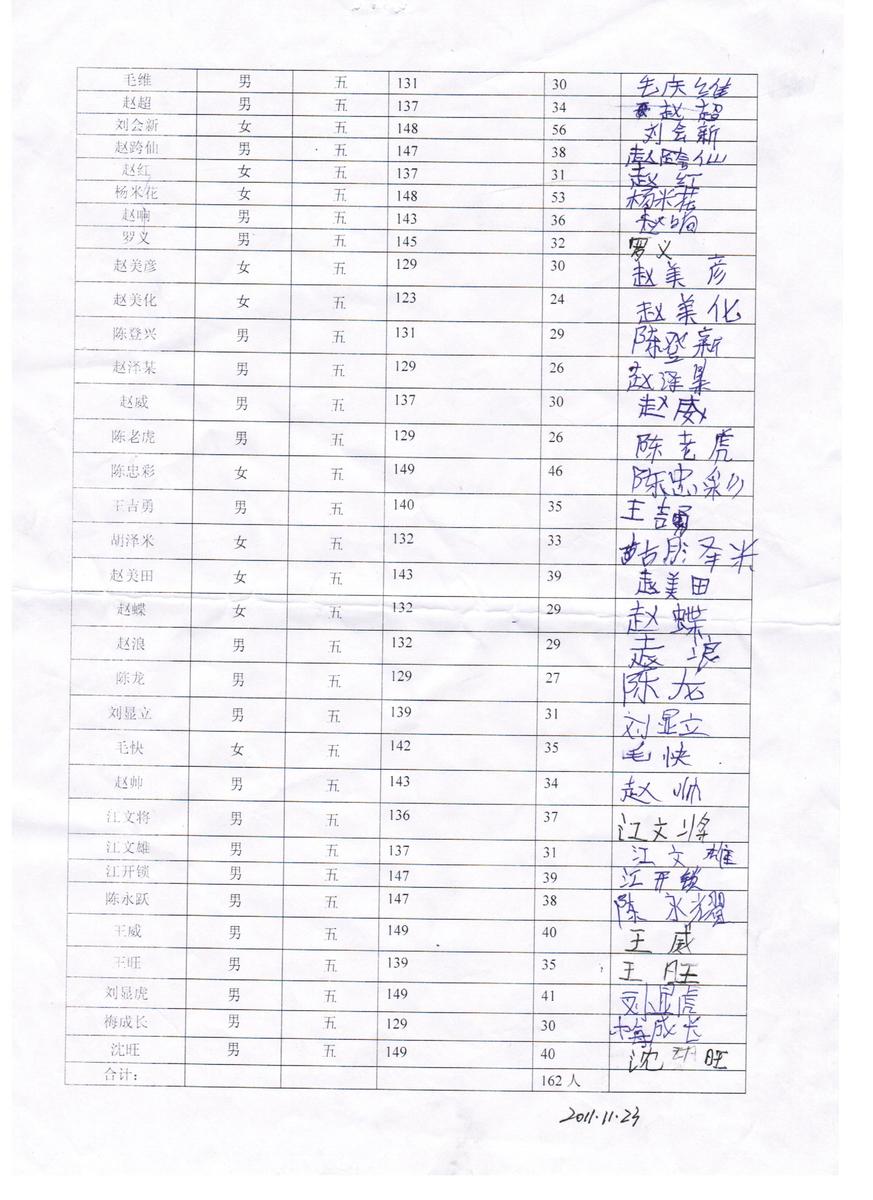 毛维 男 五 131 30 毛庆维
赵超 男 五 137 34 赵超
刘会新 女 五 148 56 刘会新
赵跨仙 男 五 147 38 赵跨仙
赵红 女 五 137 31 赵红
杨米花 女 五 148 53 杨米花
赵响 男 五 143 36 赵响
罗义 男 五 145 32 罗义
赵美彦 女 五 129 30 赵美彦
赵美化 女 五 123 24 赵美化
陈登兴 男 五 131 29 陈登新
赵泽某 男 五 129 26 赵泽某
赵威 男 五 137 30 赵威
陈老虎 男 五 129 26 陈老虎
陈忠彩 女 五 149 46 陈忠彩
王吉勇 男 五 140 35 王吉勇
胡泽米 女 五 132 33 胡泽米
赵美田 女 五 143 39 赵美田
赵蝶 女 五 132 29 赵蝶
赵浪 男 五 132 29 赵浪
陈龙 男 五 129 27 陈龙
刘显立 男 五 139 31 刘显立
毛快 女 五 142 35 毛快
赵帅 男 五 143 34 赵帅
江文将 男 五 136 37 江文将
江文雄 男 五 137 31 江文雄
江开锁 男 五 147 39 江开锁
陈永跃 男 五 147 38 陈永耀
王威 男 五 149 40 王威
王旺 男 五 139 35 王旺
刘显虎 男 五 149 41 刘显虎
梅成长 男 五 129 30 梅成长
沈旺 男 五 149 40 沈旺
合计： 162 人
2011.11.23